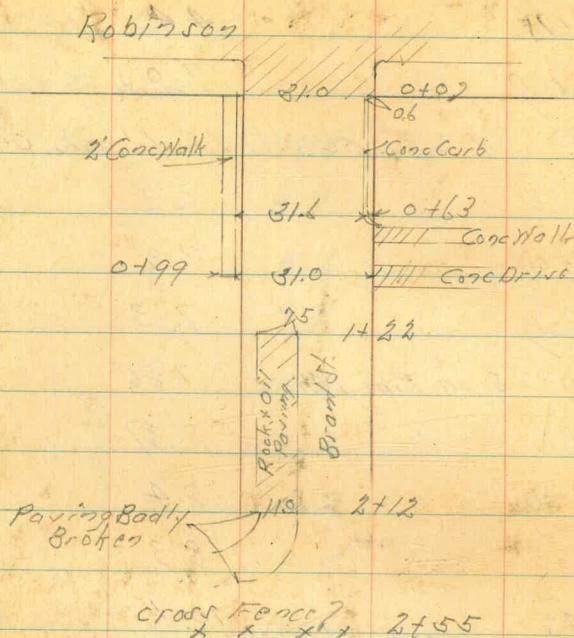 Robinson
31.0 0+02
0.6
2' Conc Walk
Conc Curb
31.6 0+63
Conc Walk
0+99 31.0 Conc Drive
7.5 1+22
Rock & Oil
Paving
11.0 2+12
Paving Badly
Broken
Cross Fence?
x x x x 2+55